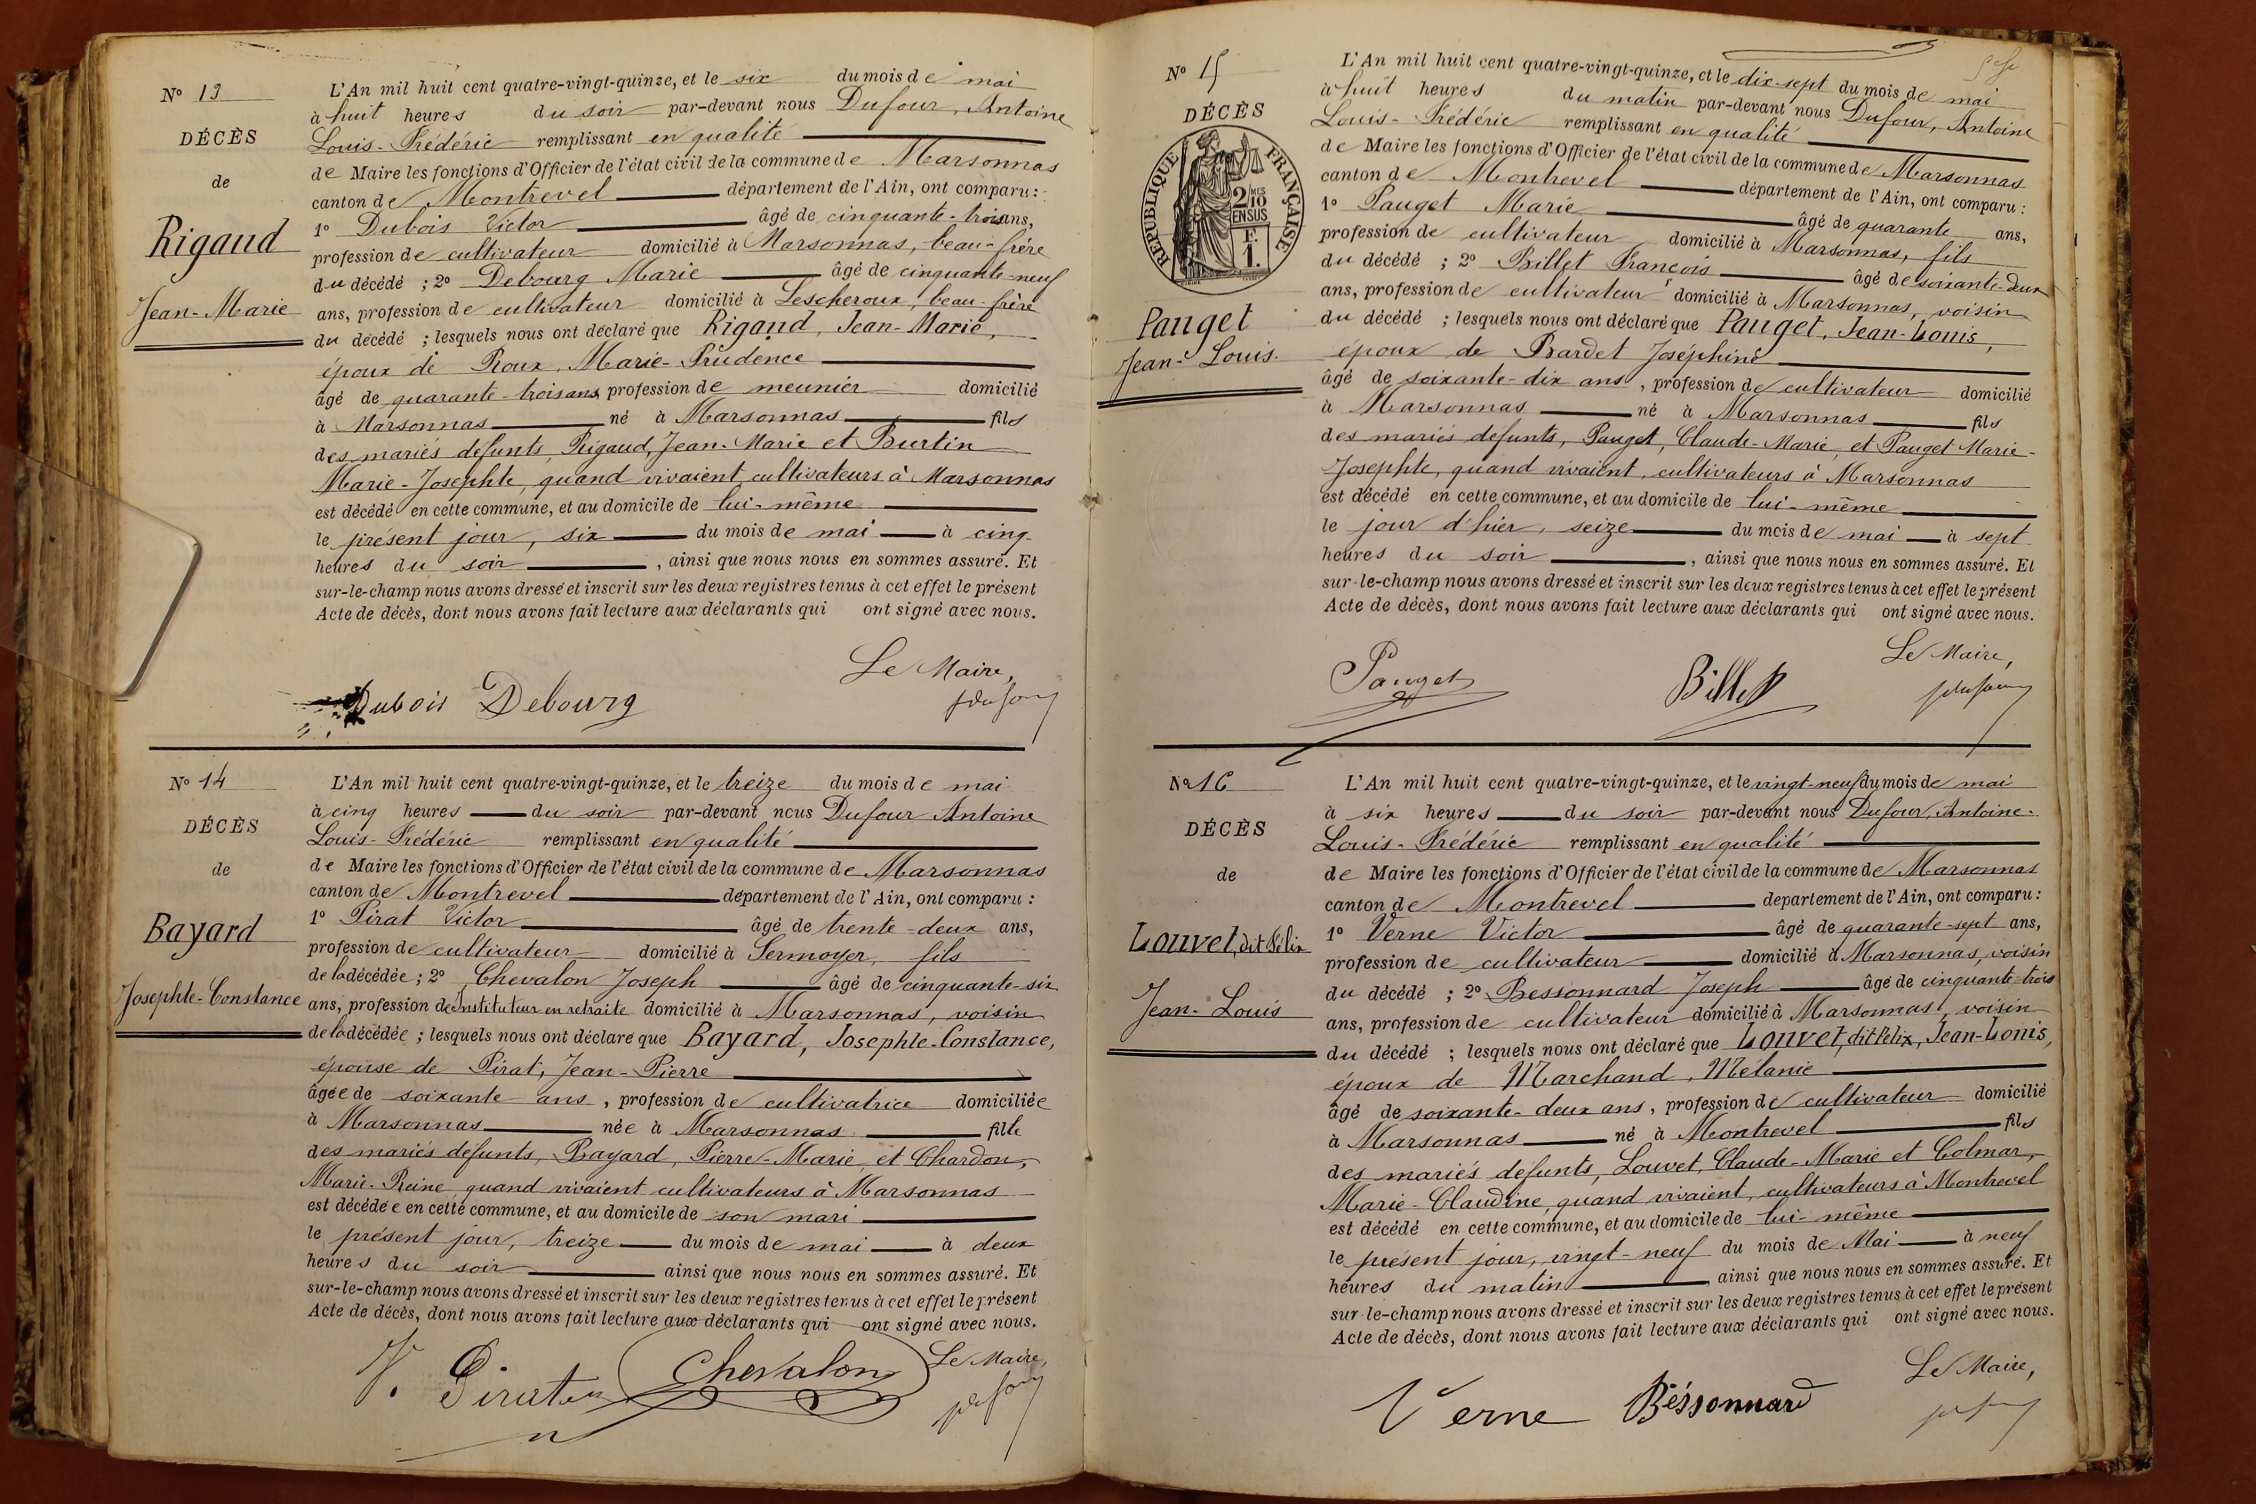 N° 13
DÉCÈS
de
Rigaud
Jean-Marie
L'An mil huit cent quatre-vingt-quinze, et le six du mois de mai
à huit heures du soir par-devant nous Dufour, Antoine
Louis-Frédéric remplissant en qualité
de Maire les fonctions d'Officier de l'état civil de la commune de Marsonnas
canton de Montrevel département de l'Ain, ont comparu :
1° Dubois Victor âgé de cinquante-trois ans,
profession de cultivateur domicilié à Marsonnas, beau-frère
du décédé ; 2° Debourg Marie âgé de cinquante-neuf
ans, profession de cultivateur domicilié à Lescheroux, beau-frère
du décédé ; lesquels nous ont déclaré que Rigaud, Jean-Marie,
époux de Roux, Marie-Prudence
âgé de quarante-trois ans profession de meunier domicilié
à Marsonnas né à Marsonnas fils
des mariés défunts, Rigaud, Jean-Marie et Burtin
Marie-Josephte, quand vivaient, cultivateurs à Marsonnas
est décédé en cette commune, et au domicile de lui-même
le présent jour, six du mois de mai à cinq
heures du soir , ainsi que nous nous en sommes assuré. Et
sur-le-champ nous avons dressé et inscrit sur les deux registres tenus à cet effet le présent
Acte de décès, dont nous avons fait lecture aux déclarants qui ont signé avec nous.
Le Maire,
Dubois Debourg
N° 14
DÉCÈS
de
Bayard
Josephte-Constance
L'An mil huit cent quatre-vingt-quinze, et le treize du mois de mai
à cinq heures du soir par-devant nous Dufour Antoine
Louis-Frédéric remplissant en qualité
de Maire les fonctions d'Officier de l'état civil de la commune de Marsonnas
canton de Montrevel département de l'Ain, ont comparu :
1° Pirat Victor âgé de trente-deux ans,
profession de cultivateur domicilié à Sermoyer, fils
de la décédée ; 2° Chevalon Joseph âgé de cinquante-six
ans, profession de instituteur en retraite domicilié à Marsonnas, voisin
de la décédée ; lesquels nous ont déclaré que Bayard, Josephte-Constance,
épouse de Pirat, Jean-Pierre
âgée de soixante ans, profession de cultivatrice domiciliée
à Marsonnas née à Marsonnas fille
des mariés défunts, Bayard, Pierre-Marie, et Chardon,
Marie-Reine quand vivaient cultivateurs à Marsonnas
est décédée en cette commune, et au domicile de son mari
le présent jour, treize du mois de mai à deux
heures du soir ainsi que nous nous en sommes assuré. Et
sur-le-champ nous avons dressé et inscrit sur les deux registres tenus à cet effet le présent
Acte de décès, dont nous avons fait lecture aux déclarants qui ont signé avec nous.
Le Maire,
V. Pirat Chevalon
N° 15
DÉCÈS
RÉPUBLIQUE FRANÇAISE
2 MES 10
EN SUS
F.
1.
Pauget
Jean-Louis.
L'An mil huit cent quatre-vingt-quinze, et le dix-sept du mois de mai
à huit heures du matin par-devant nous Dufour, Antoine
Louis-Frédéric remplissant en qualité
de Maire les fonctions d'Officier de l'état civil de la commune de Marsonnas
canton de Montrevel département de l'Ain, ont comparu :
1° Pauget Marie âgé de quarante ans,
profession de cultivateur domicilié à Marsonnas, fils
du décédé ; 2° Billet François âgé de soixante-deux
ans, profession de cultivateur domicilié à Marsonnas, voisin
du décédé ; lesquels nous ont déclaré que Pauget, Jean-Louis,
époux de Bardet Joséphine
âgé de soixante-dix ans, profession de cultivateur domicilié
à Marsonnas né à Marsonnas fils
des mariés défunts, Pauget, Claude-Marie, et Pauget Marie-
Josephte, quand vivaient, cultivateurs à Marsonnas
est décédé en cette commune, et au domicile de lui-même
le jour d'hier, seize du mois de mai à sept
heures du soir , ainsi que nous nous en sommes assuré. Et
sur-le-champ nous avons dressé et inscrit sur les deux registres tenus à cet effet le présent
Acte de décès, dont nous avons fait lecture aux déclarants qui ont signé avec nous.
Le Maire,
Pauget Billet
N° 16
DÉCÈS
de
Louvet, dit Félix
Jean-Louis
L'An mil huit cent quatre-vingt-quinze, et le vingt-neuf du mois de mai
à six heures du soir par-devant nous Dufour, Antoine-
Louis-Frédéric remplissant en qualité
de Maire les fonctions d'Officier de l'état civil de la commune de Marsonnas
canton de Montrevel département de l'Ain, ont comparu :
1° Verne Victor âgé de quarante-sept ans,
profession de cultivateur domicilié à Marsonnas, voisin
du décédé ; 2° Bessonnard Joseph âgé de cinquante-trois
ans, profession de cultivateur domicilié à Marsonnas, voisin
du décédé ; lesquels nous ont déclaré que Louvet, dit Félix, Jean-Louis,
époux de Marchand, Mélanie
âgé de soixante-deux ans, profession de cultivateur domicilié
à Marsonnas né à Montrevel fils
des mariés défunts, Louvet, Claude-Marie et Colmar,
Marie-Claudine, quand vivaient, cultivateurs à Montrevel
est décédé en cette commune, et au domicile de lui-même
le présent jour, vingt-neuf du mois de Mai à neuf
heures du matin , ainsi que nous nous en sommes assuré. Et
sur-le-champ nous avons dressé et inscrit sur les deux registres tenus à cet effet le présent
Acte de décès, dont nous avons fait lecture aux déclarants qui ont signé avec nous.
Le Maire,
Verne Béssonnard